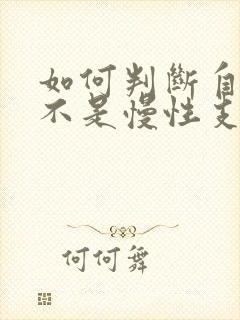 如何判斷自
不是慢性支
何何舞